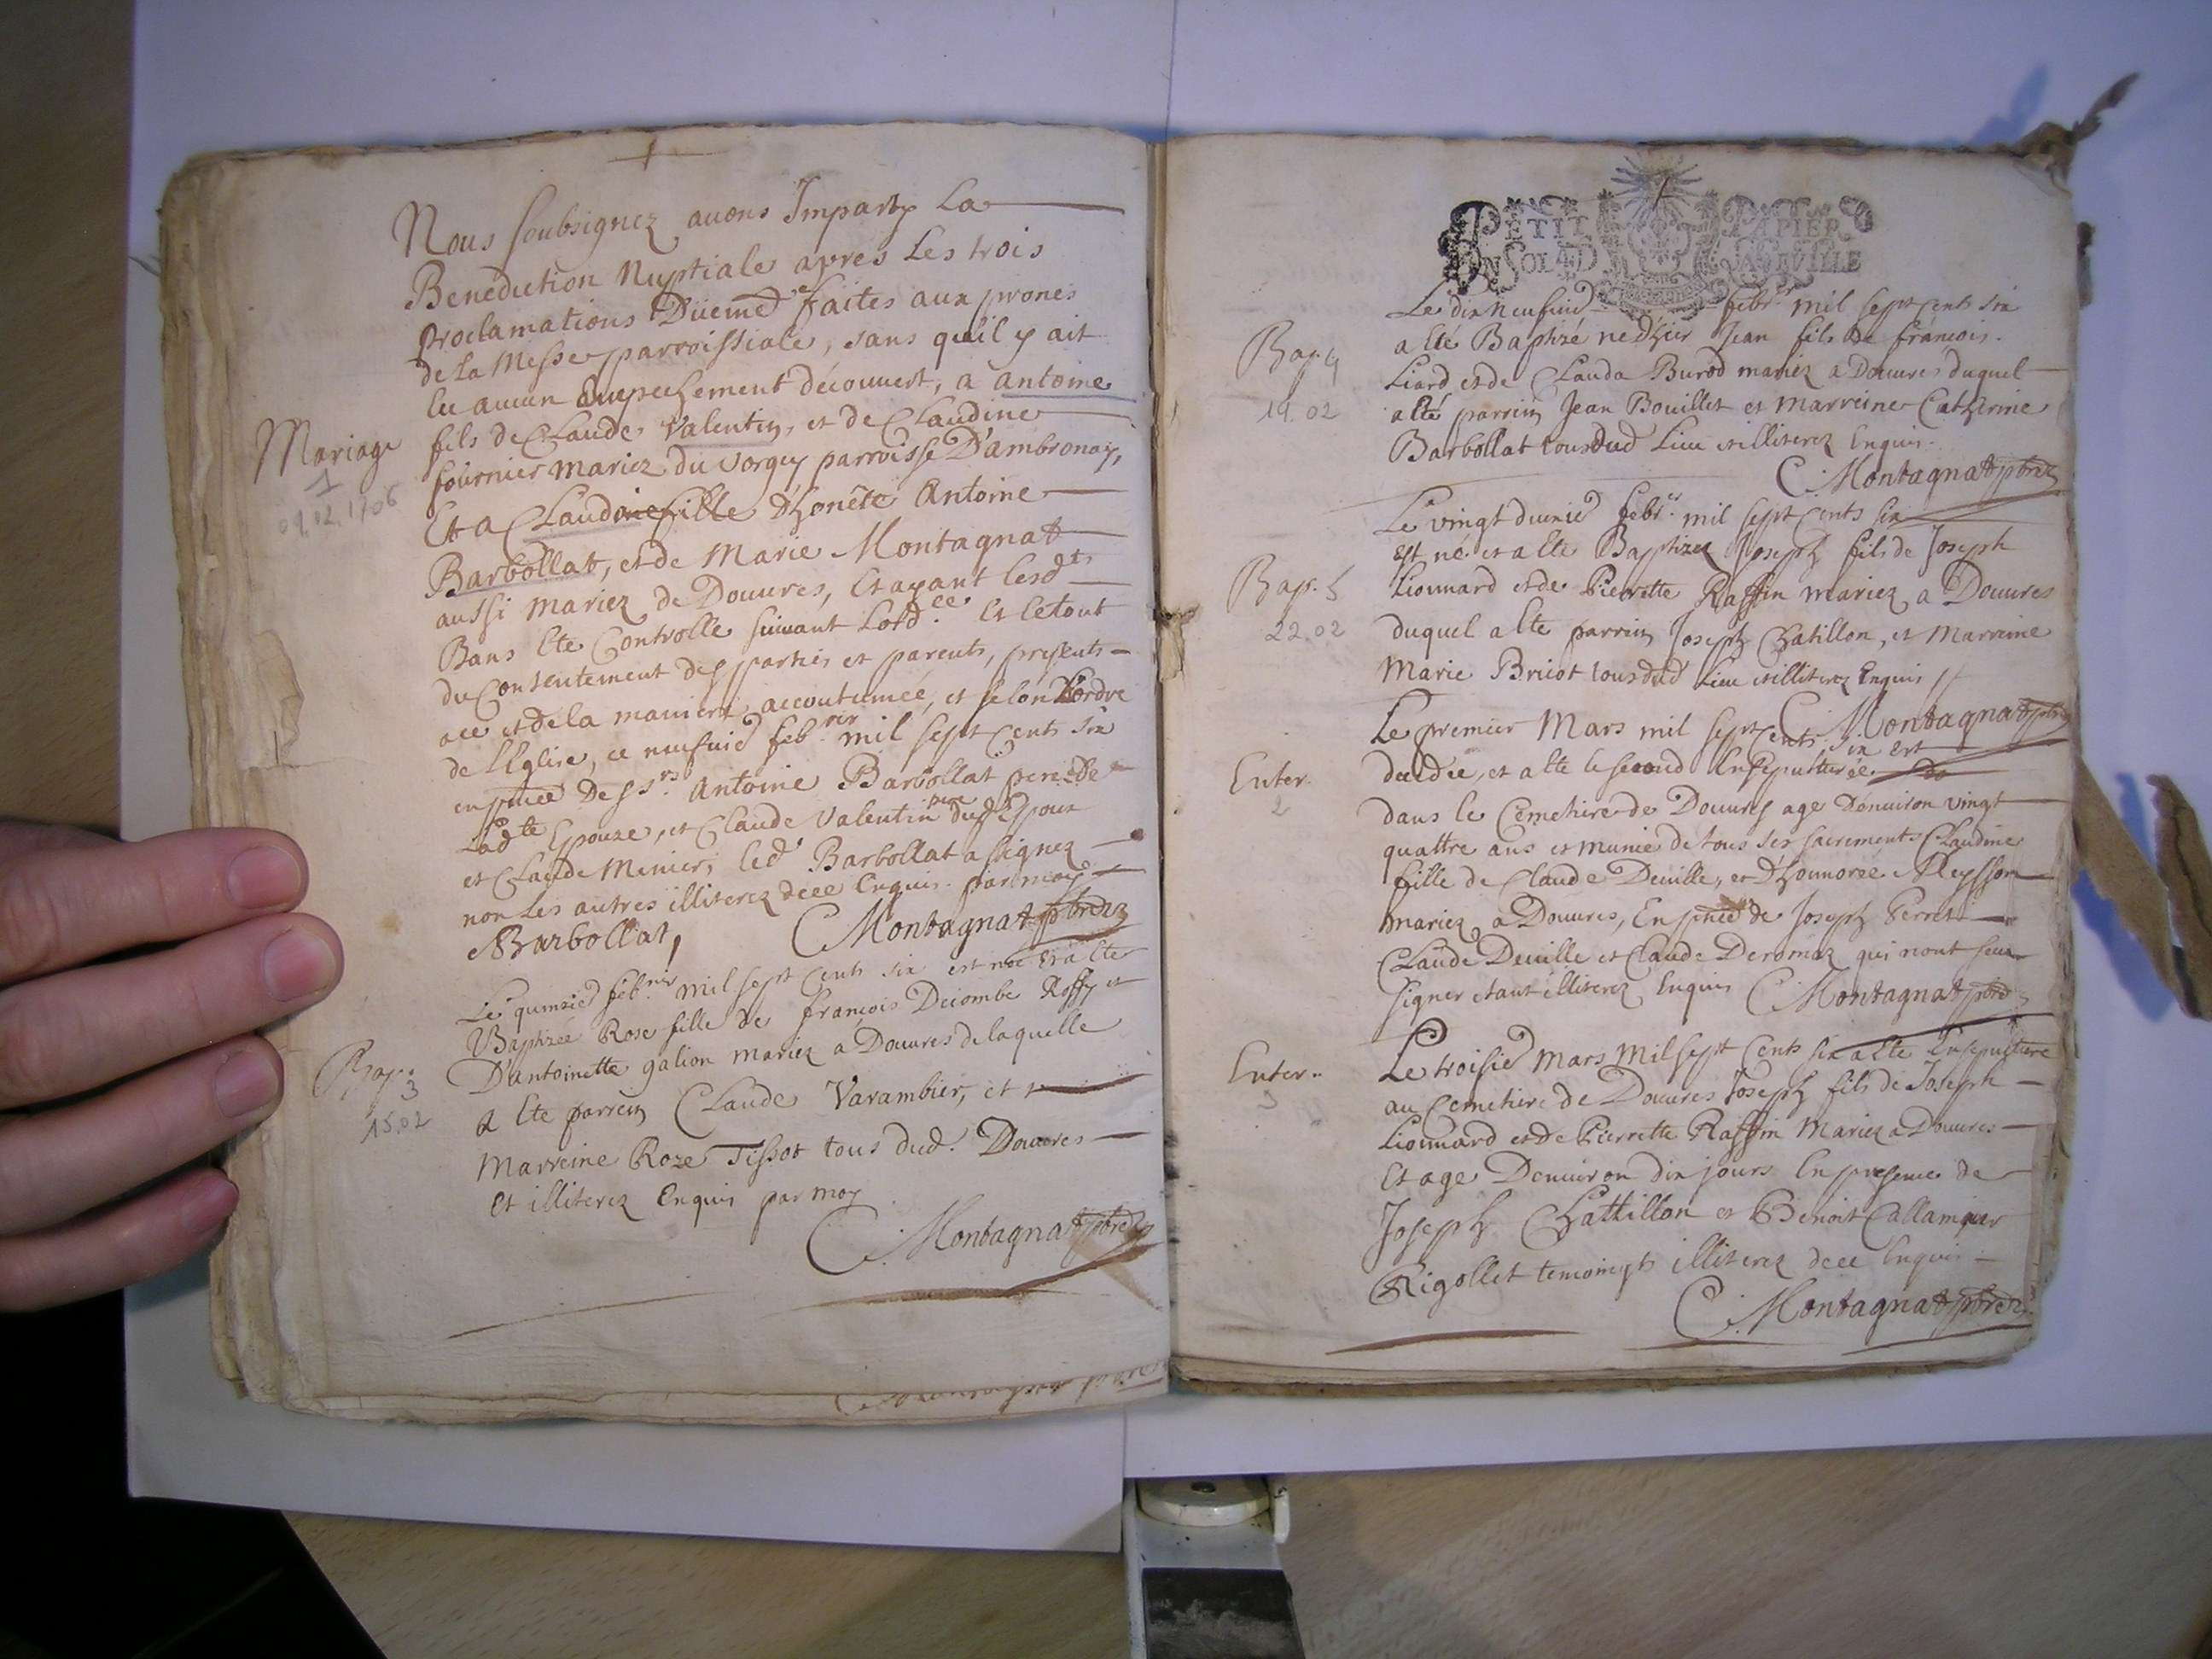 Nous soubsignez avons Imparty La
Benediction Nuptiale apres Les trois
proclamations Düemt faites aux prones
de la Messe parroissiale, sans quil y ait
Eu aucun Empechement découvert, a antoine
fils de Claude Valentin, et de Claudine
fournier mariez du vorgey parroisse D'ambronay,
Mariage
1
09.02.1706
Et a Claudine fille d'honête Antoine
Barbollat, et de Marie Montagnat
aussi mariez de Douvres, Et ayant lesdts
Bans Ete Controlle suivant Lord.ce Et le tout
du Consentement des parties et parents, presents
ace et de la maniere accoutumeé, et selon L'ordre
de l'Eglise, ce neufvie febrer mil sept Cents six
en pnce De Ss.rs Antoine Barbollat pere de
Ladte Epouze, et Claude Valentin pere dud Epoux
et Claude Minier, led Barbollat a signez
non Les autres illiterez dece Enquis par moy
ABarbollat, C Montagnat pbre
Le quinzie feb.rier mil sept Cents six est neé Et a Ete
Baptizeé Rose fille de françois Decombe Roffy et
D'antoinette galion mariez a Douvres de laquelle
Bap. 3
15.02
a Ete parrein Claude Varambier, et
Marreine Roze Tissot tous dud. Douvres
Et illiterez Enquis par moy
C. Montagnat pbre
PETIT PAPIER
UN SOL LA FEUILLE
Le dix neufvie febr.er mil sept Cents six
Bap. 4
19.02
a Eté Baptizé ne d'hier Jean fils de françois
Liard et de Clauda Burod mariez a Douvres duquel
a Eté parrein Jean Bouillet et Marreine Catherine
Barbollat tous dud Lieu et illiterez Enquis.
C. Montagnat pbre
Le vingt deuxie febr.er mil sept Cents six
Est né et a Ete Baptizez Joseph fils de Joseph
Bap. 5
22.02
Lionnard et de Pierrette Raffin mariez a Douvres
duquel a Ete parrein Joseph Chatillon, et Marreine
Marie Bricot tous dud Lieu et illiterez Enquis
C. Montagnat pbre
Le premier Mars mil sept Cents six est
Enter.
2
decedée, et a Ete le second Ensepulturée
dans le Cemetiere de Douvres age Denviron vingt
quattre ans et muniée de tous ses sacrements Claudine
fille de Claude Deville, et D'honnorée Reysson
mariez a Douvres, En pnce de Joseph Perret
Claude Deville et Claude Deromaz qui n'ont sceu
signer Etant illiterez Enquis C Montagnat pbre
Enter.
3
Le troisie Mars Mil sept Cents six a Ete Ensepulture
au Cemetiere de Douvres Joseph fils de Joseph
Lionnard et de Pierrette Raffin Mariez a Douvres
Et age Denviron dix jours En presence de
Joseph Chattillon et Benoit Callamier
Rigollet temoingts illiterez dece Enquis
C. Montagnat pbre